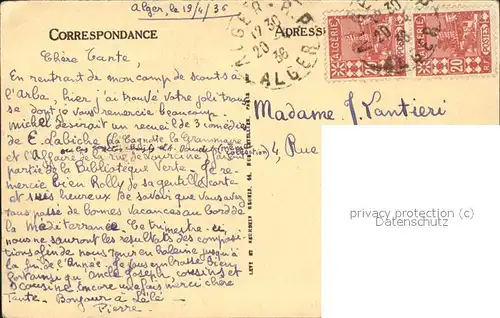 Alger, le 19/4/36
CORRESPONDANCE
ADRESSE
ALGER R.P.
17 30
20
36
ALGER
ALGERIE
20
ALGERIE
20
Chère Tante,
En rentrant de mon camp de scouts à
l'Arba, hier, j'ai trouvé votre joli trous
se dont je vous remercie beaucoup.
Michel désirait un recueil de 3 comédies
de E. Labiche (La Cagnotte La Grammaire
et l'Affaire de la rue de Lourcine) faisant
partie de la Bibliothèque Verte. Je re-
mercie bien Rolly de sa gentille carte
et suis heureux de savoir que vous avez
tous passé de bonnes vacances au bord de
la Méditerranée. Ce trimestre-ci,
nous ne saurons les résultats des composi-
tions afin de nous tenir en haleine jusqu'à
la fin de l'Année. Je vous embrasse bien
fort ainsi qu'Oncle Joseph, cousins et
cousine. Encore une fois merci chère
Tante. Bonjour à Lélé.
Pierre.
Madame J. Vantieri
4, Rue
privacy protection
Datenschutz